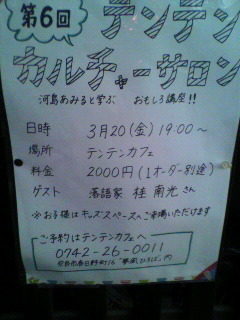 第6回
テンテン
カルチャーサロン
河島あみると学ぶ おもしろ講座!!
日時 3月20(金)19:00〜
場所 テンテンカフェ
料金 2000円(1オーダー別途)
ゲスト 落語家 桂 南光さん
※お子様はキッズスペースへご来場いただけます
ご予約はテンテンカフェへ
0742-26-0011
奈良市春日野町16「夢風ひろば」内